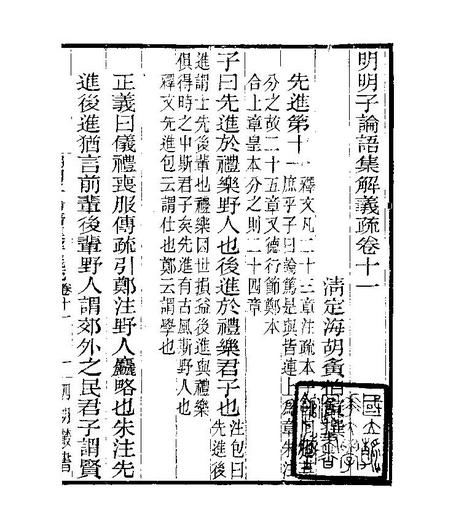 明明子論語集解義疏卷十一
清定海胡夤
先進第十一
釋文凡二十三章注疏本
庶乎子曰論篤是與皆連上為章朱注
分之故二十五章又德行節鄭本
合上章皇本分之則二十四章
子曰先進於禮樂野人也後進於禮樂君子也
注包曰
先進後
進謂士先後輩也禮樂因世損益後進與禮樂
俱得時之中斯君子矣先進有古風斯野人也
釋文先進包云謂仕也鄭云謂學也
正義曰儀禮喪服傳疏引鄭注野人麤略也朱注先
進後進猶言前輩後輩野人謂郊外之民君子謂賢